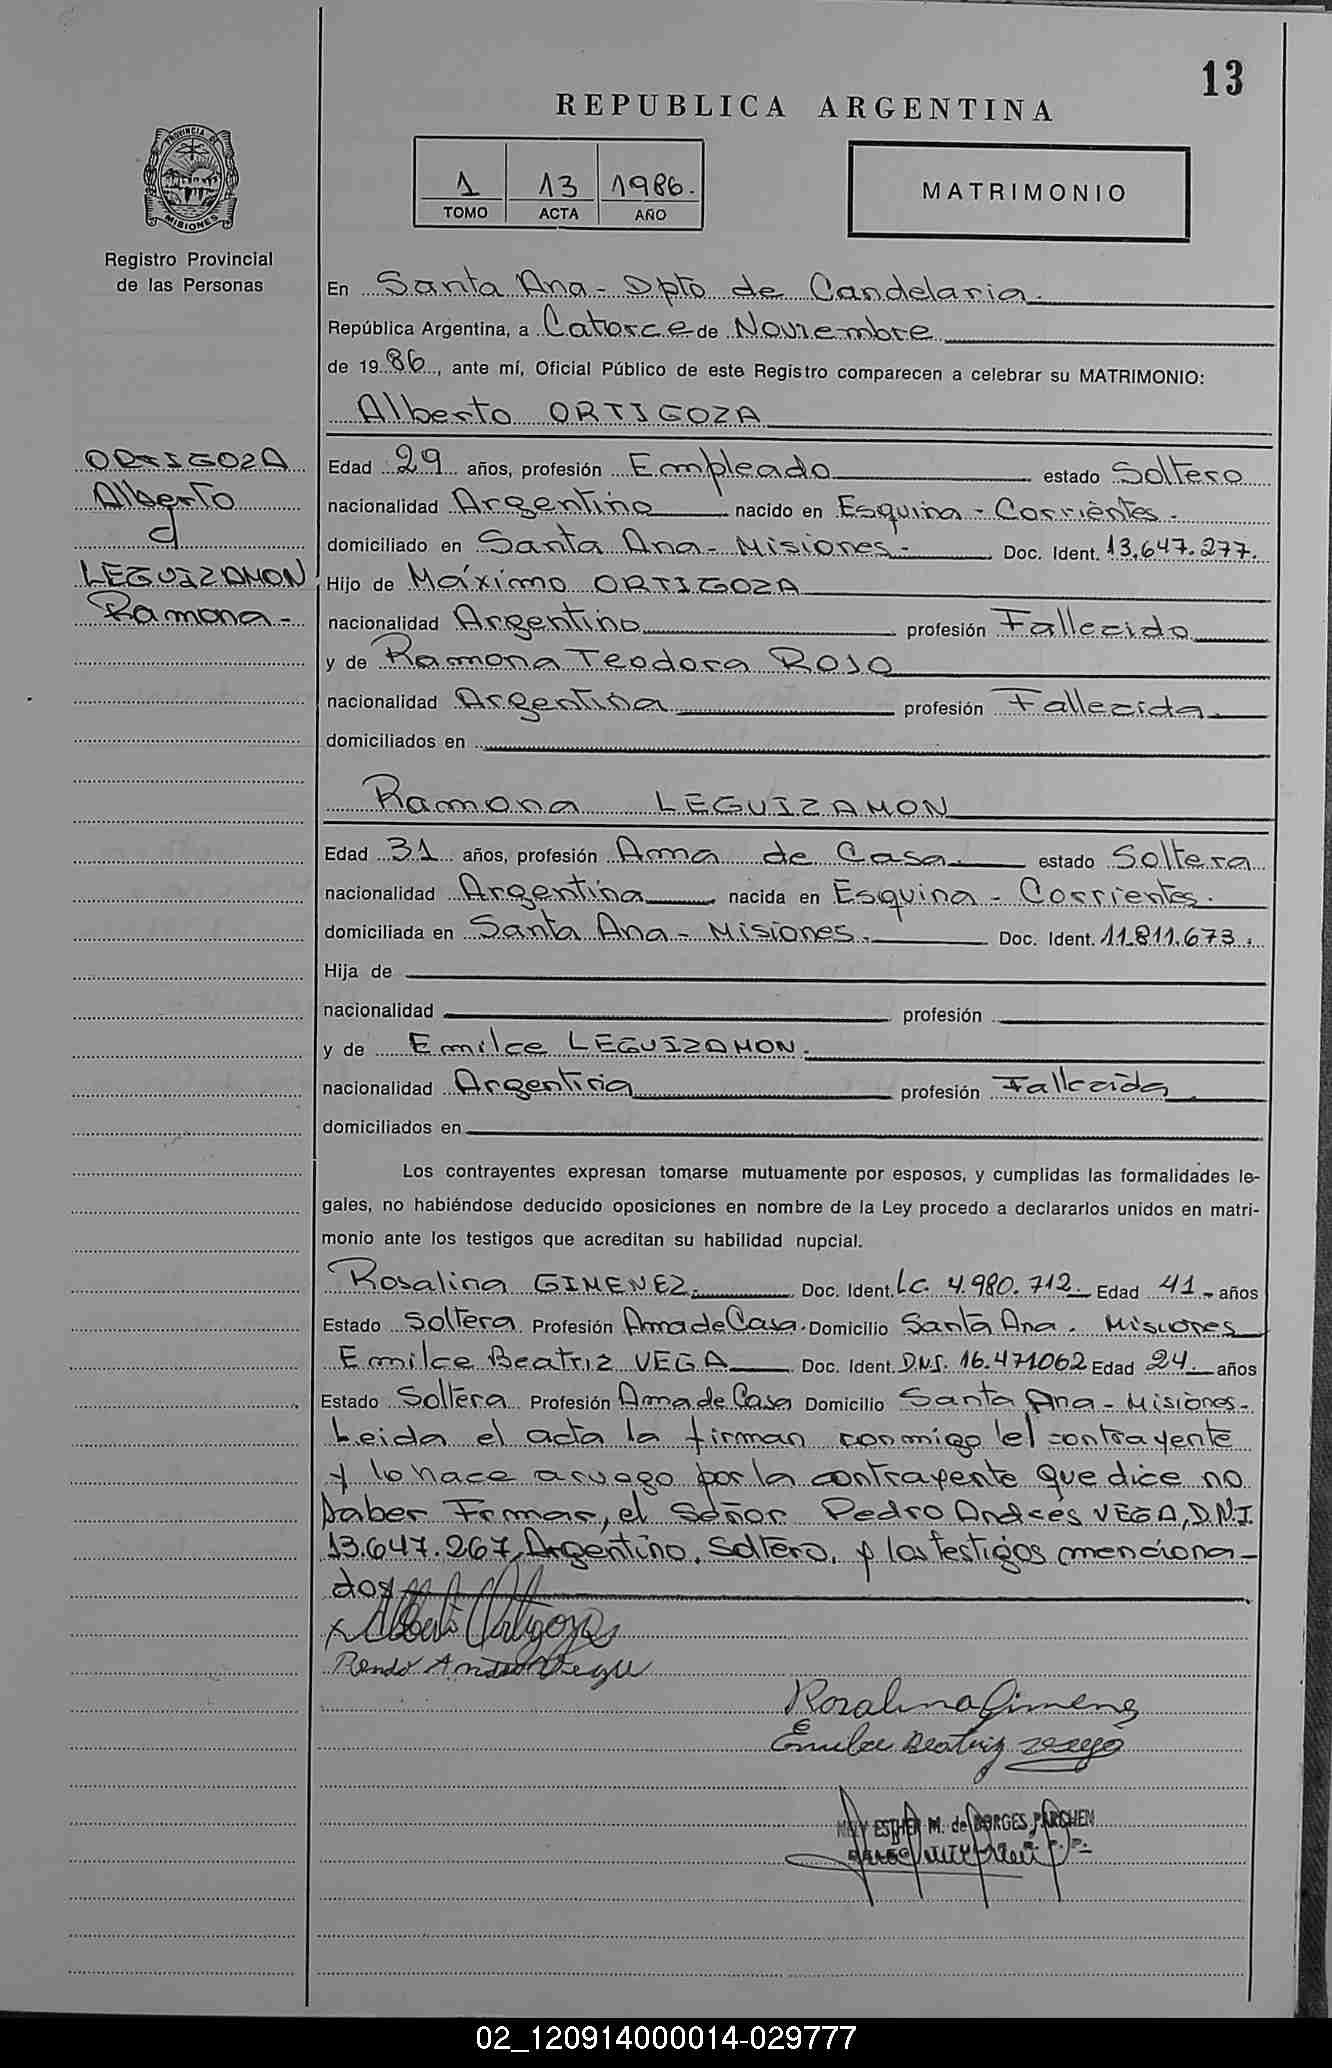 13
REPUBLICA ARGENTINA
1 13 1986.
TOMO ACTA AÑO
MATRIMONIO
PROVINCIA DE
MISIONES
Registro Provincial
de las Personas
En Santa Ana - Dpto de Candelaria.
República Argentina, a Catorce de Noviembre
de 1986, ante mí, Oficial Público de este Registro comparecen a celebrar su MATRIMONIO:
Alberto ORTIGOZA
ORTIGOZA
Alberto
c/
LEGUIZAMON
Ramona -
Edad 29 años, profesión Empleado estado Soltero
nacionalidad Argentino nacido en Esquina - Corrientes.
domiciliado en Santa Ana - Misiones - Doc. Ident. 13.647.277.
Hijo de Máximo ORTIGOZA
nacionalidad Argentino profesión Fallecido
y de Ramona Teodora ROJO
nacionalidad Argentina profesión Fallecida
domiciliados en
Ramona LEGUIZAMON
Edad 31 años, profesión Ama de Casa estado Soltera
nacionalidad Argentina nacida en Esquina - Corrientes.
domiciliada en Santa Ana - Misiones. Doc. Ident. 11.811.673.
Hija de
nacionalidad profesión
y de Emilce LEGUIZAMON.
nacionalidad Argentina profesión Fallecida
domiciliados en
Los contrayentes expresan tomarse mutuamente por esposos, y cumplidas las formalidades le-
gales, no habiéndose deducido oposiciones en nombre de la Ley procedo a declararlos unidos en matri-
monio ante los testigos que acreditan su habilidad nupcial.
Rosalina GIMENEZ. Doc. Ident. L.C. 4.980.712. Edad 41 - años
Estado Soltera Profesión Ama de Casa. Domicilio Santa Ana. Misiones
Emilce Beatriz VEGA Doc. Ident. D.N.I. 16.471062 Edad 24. años
Estado Soltera Profesión Ama de Casa Domicilio Santa Ana - Misiones-
Leida el acta la firman conmigo el contrayente
y lo hace a ruego por la contrayente que dice no
saber Firmar, el Señor Pedro Andrés VEGA, D.N.I
13.647.267, Argentino, Soltero, y los testigos menciona-
dos
x Alberto Ortigoza
Andres Vega
Rosalina Gimenez
Emilce Beatriz Vega
ESTHER M. de BORGES PARCHEN
02_120914000014-029777